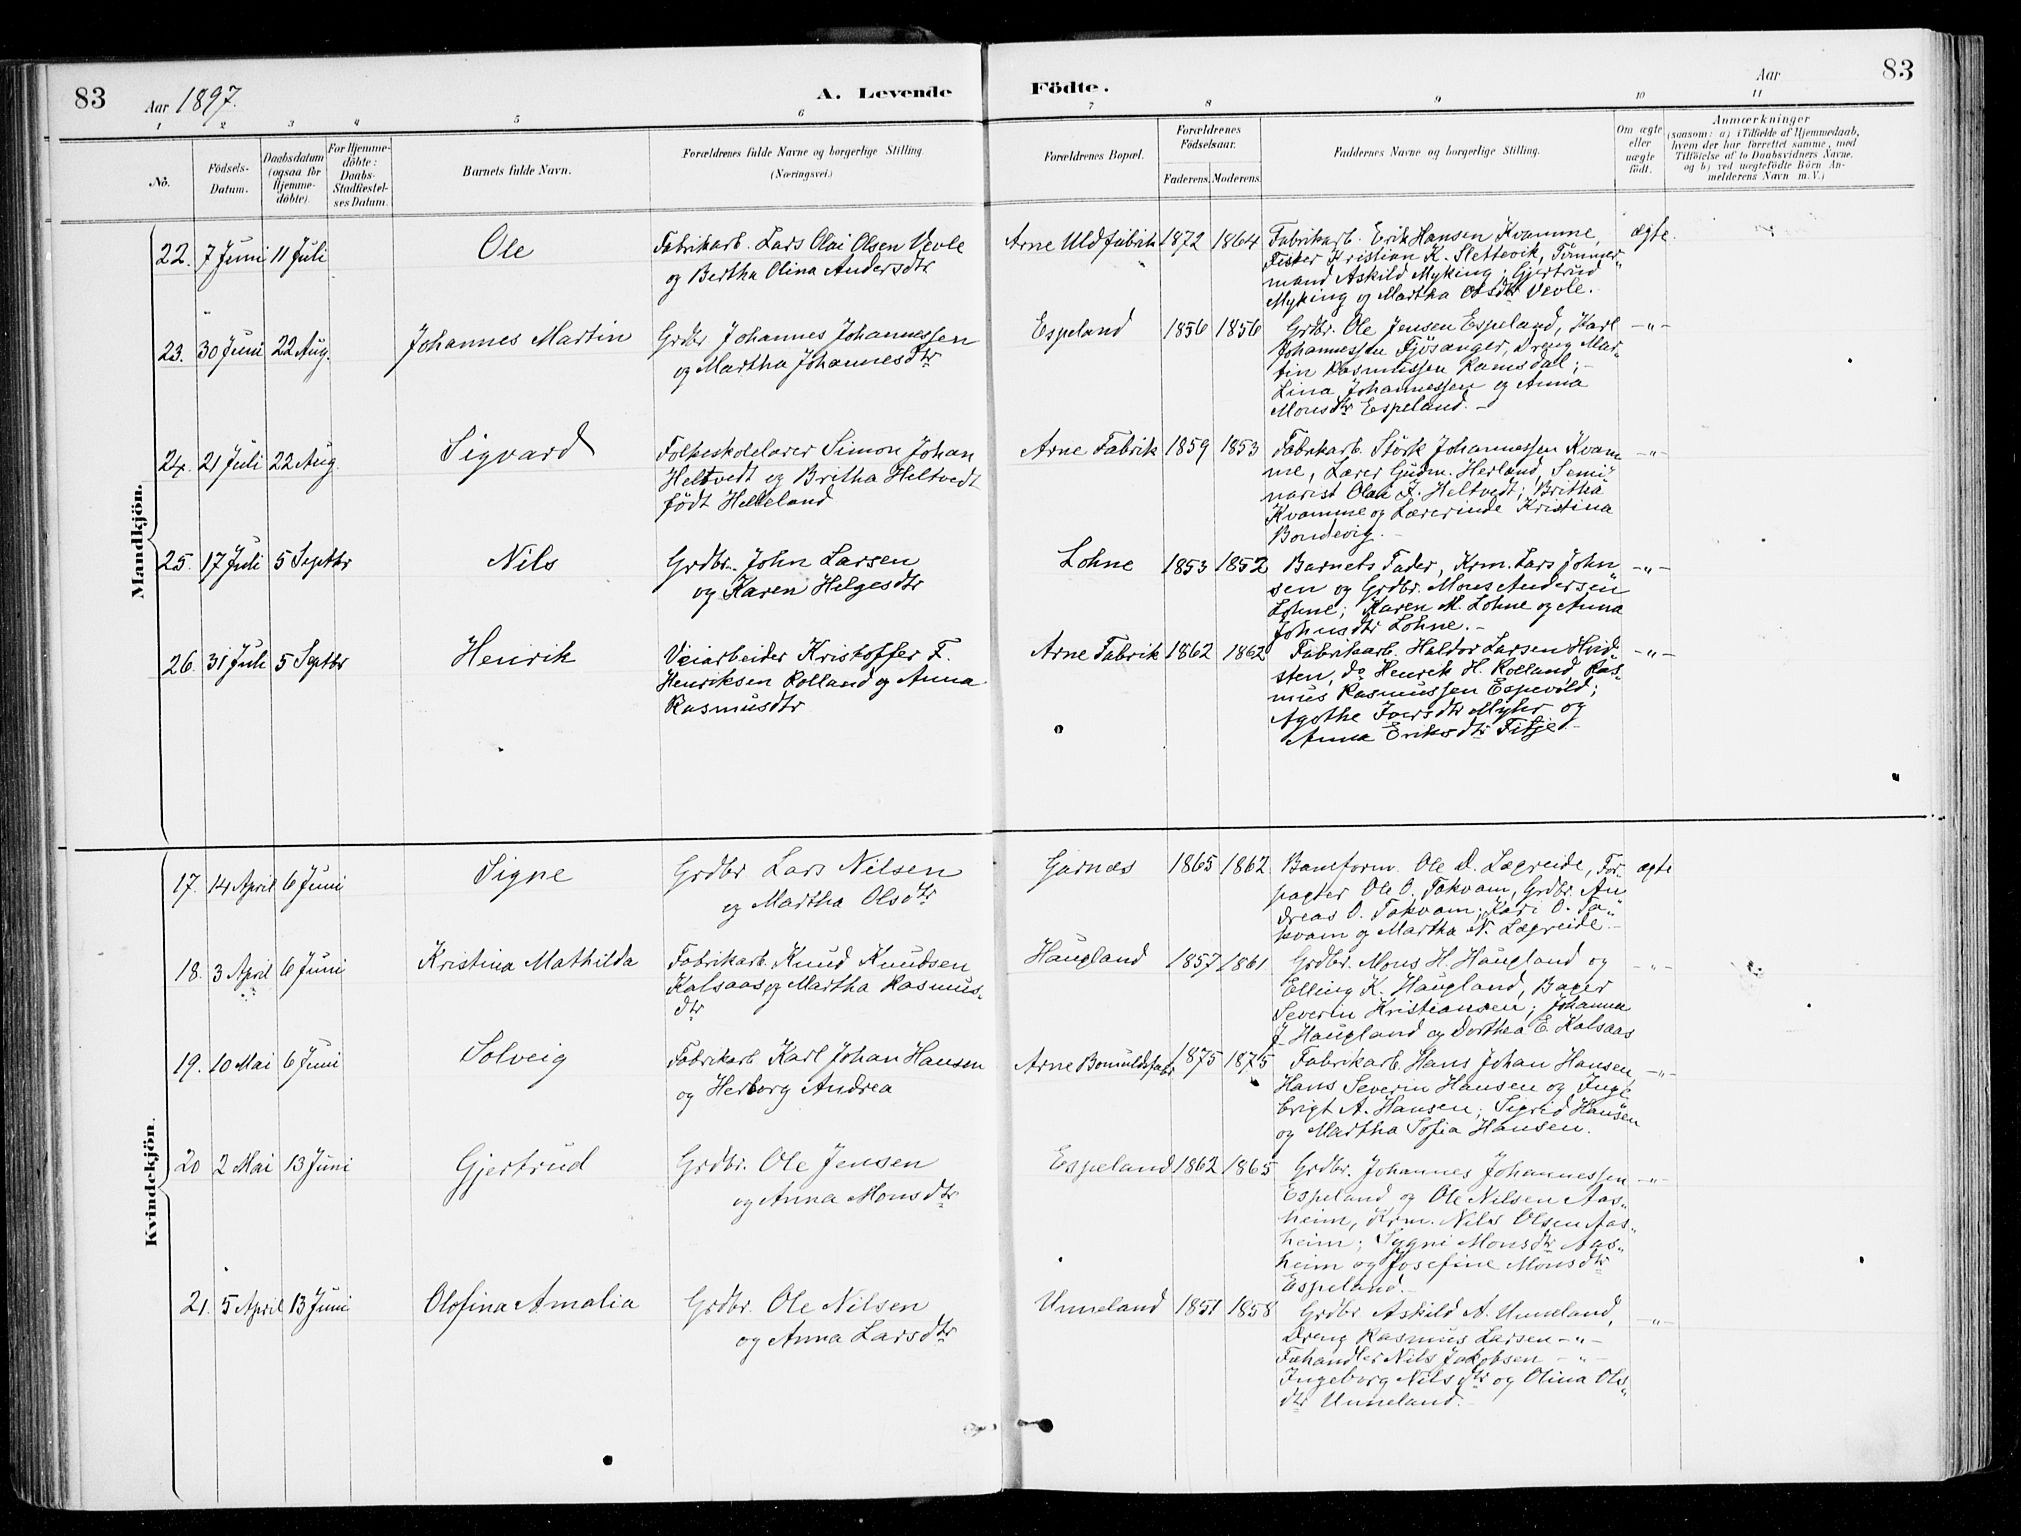 83
Aar 1897.
A. Levende
Födte.
Aar
83
1
2
3
4
5
6
7
8
9
10
11
No.
Födsels-
Datum.
Daabsdatum
(ogsaa för
Hjemme-
döbte).
For Hjemme-
döbte:
Daabs-
Stadfæstel-
ses Datum.
Barnets fulde Navn.
Forældrenes fulde Navne og borgerlige Stilling.
(Næringsvei.)
Forældrenes Bopæl.
Forældrenes
Födselsaar.
Faderens.
Moderens.
Faddernes Navne og borgerlige Stilling.
Om ægte
eller
uægte
födt.
Anmærkninger
(saasom: a) i Tilfælde af Hjemmedaab,
hvem der har forrettet samme, med
Tilföielse af to Daabsvidners Navne.
og b) ved uægtefödte Börn An-
melderens Navn m. V.)
Mandkjön.
22. 7 Juni 11 Juli
Ole
Fabrikarb. Lars Olai Olsen Vevle
og Bertha Olina Andersdtr
Arne Uldfabrik 1872 1864
Fabrikarb. Erik Hansen Kvamme,
Fisker Kristian K. Slettevik, Tömmer-
mand Askild Myking; Gjertrud
Myking og Martha Olsdtr Vevle.
ægte.
23. 30 Juni 22 Aug.
Johannes Martin
Grdbr Johannes Johannessen
og Martha Johannesdtr
Espeland 1856 1856
Grdbr. Ole Jensen Espeland, Karl
Johannessen Fjösanger, Dreng Mar-
tin Rasmussen Ramsdal;
Lina Johannessen og Anna
Monsdtr Espeland.
-"-
24. 21 Juli 22 Aug.
Sigvard
Folkeskolelærer Simon Johan
Heltvedt og Britha Heltvedt
födt Helleland
Arne Fabrik 1859 1853
Fabrikarb. Störk Johannessen Kvam-
me, Lærer Gudm. Herland, Semi-
narist Olai J. Heltvedt; Britha
Kvamme og Lærerinde Kristina
Bondevig.
-"-
25. 17 Juli 5 Septbr
Nils
Grdbr. John Larsen
og Karen Helgesdtr
Lohne 1853 1852
Barnets Fader, Krm. Lars John-
sen og Grdbr. Mons Andersen
Lohne; Karen M. Lohne og Anna
Johnsdtr Lohne.
-"-
26. 31 Juli 5 Septbr
Henrik
Veiarbeider Kristoffer F.
Henriksen Rolland og Anna
Rasmusdtr
Arne Fabrik 1862 1862
Fabrikarb. Haldor Larsen Hvid-
sten, do Henrik H. Rolland, Ras-
mus Rasmussen Espevold;
Agothe Iversdtr Myhr og
Anna Eriksdtr Fitje.
-"-
Kvindekjön.
17. 14 April 6 Juni
Signe
Grdbr Lars Nilsen
og Martha Olsdtr
Garnæs 1865 1862
Baneform. Ole D. Lægreide, For-
pagter Ole O. Takvam, Grdbr. An-
dreas O. Takvam; Kari O. Ta-
kvam og Martha N. Lægreide.
ægte
18. 3 April 6 Juni
Kristina Mathilda
Fabrikarb. Knud Knudsen
Kalsaas og Martha Rasmus-
dtr
Haugland 1857 1861
Grdbr. Mons H. Haugland og
Elling K. Haugland, Bager
Severin Kristiansen; Johanna
J. Haugland og Dorthea E. Kalsaas
-"-
19. 10 Mai 6 Juni
Solveig
Fabrikarb Karl Johan Hansen
og Herborg Andrea
Arne Bomuldsfabr 1875 1875
Fabrikarb. Hans Johan Hansen
Hans Severin Hansen og Inge-
brigt A. Hansen; Sigrid Hansen
og Martha Sofia Hansen.
-"-
20 2 Mai 13 Juni
Gjertrud
Grdbr. Ole Jensen
og Anna Monsdtr
Espeland 1862 1865
Grdbr. Johannes Johannessen
Espeland og Ole Nilsen Aas-
heim, Krm. Nils Olsen Aas-
heim; Sygni Monsdtr Aas-
heim og Josefine Monsdtr
Espeland.
-"-
21. 5 April 13 Juni
Olofina Amalia
Grdbr. Ole Nilsen
og Anna Larsdtr
Unneland 1851 1858
Grdbr Askild A. Unneland,
Dreng Rasmus Larsen -"-
Fæhandler Nils Jakobsen -"-
Ingeborg Nilsdtr og Olina Ols-
dtr Unneland.
-"-